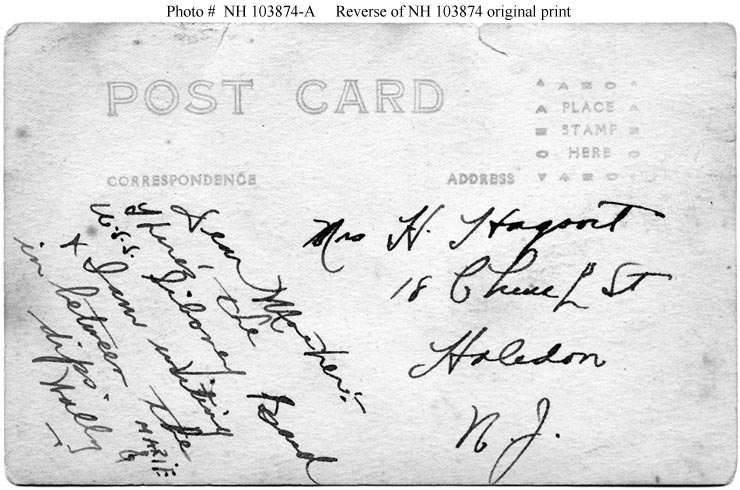 Photo # NH 103874-A Reverse of NH 103874 original print
POST CARD
A AZO A
PLACE
STAMP
HERE
CORRESPONDENCE
ADDRESS
Dear Mother:-
Here's the
U.S.S. Siboney
& I am writing
in between the
dips
Wally
MARIE
Mrs H. Hagoort
18 Church St
Haledon
N.J.